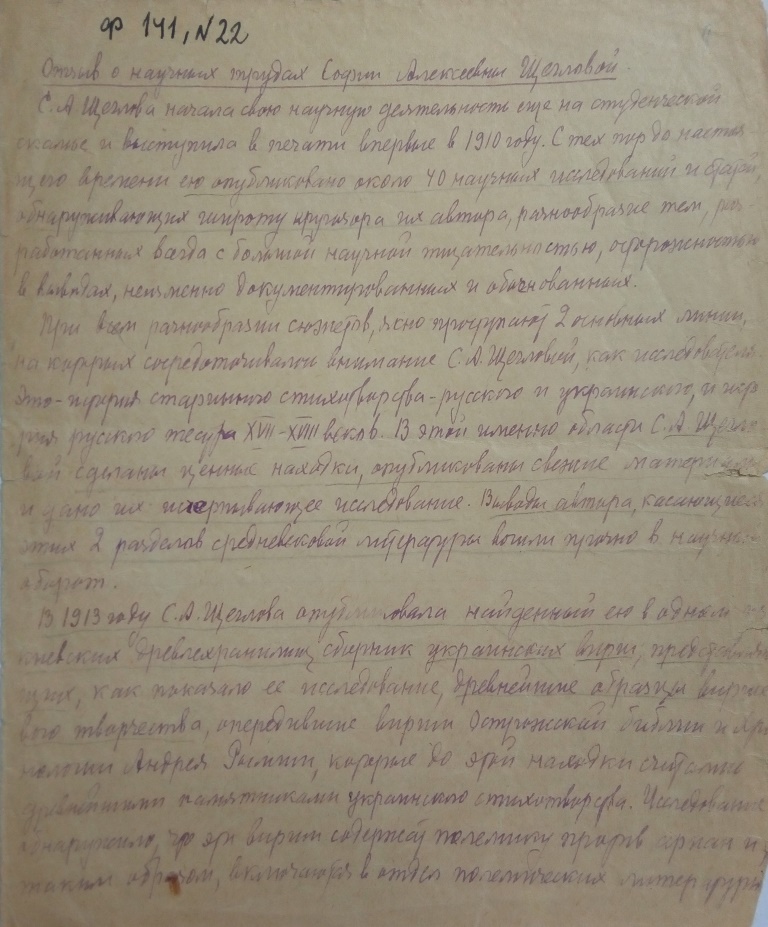 ф 141, N 22
Отзыв о научных трудах Софии Алексеевны Щегловой.
С. А Щеглова начала свою научную деятельность еще на студенческой
скамье и выступила в печати впервые в 1910 году. С тех пор до настоя
щего времени ею опубликовано около 40 научных исследований и статей,
обнаруживающих широту кругозора их автора, разнообразие тем, раз-
работанных всегда с большой научной тщательностью, осторожностью
в выводах, неизменно документированных и обоснованных.
При всем разнообразии сюжетов, ясно проступают 2 основных линии,
на которых сосредоточивалось внимание С. А. Щегловой, как исследователя.
Это - история старинного стихотворства - русского и украинского, и исто
рия русского театра XVII-XVIII веков. В этой именно области С. А. Щегло
вой сделаны ценные находки, опубликованы свежие материалы
и дано их исчерпывающее исследование. Выводы автора, касающиеся
этих 2 разделов средневековой литературы вошли прочно в научный
оборот.
В 1913 году С. А. Щеглова опубликовала найденный ею в одном из
киевских древлехранилищ сборник украинских вирш, представляю
щих, как показало ее исследование, древнейшие образцы виршe
вого творчества, опередившие вирши Острожской библии и Хро
нологии Андрея Рымши, которые до этой находки считались
древнейшими памятниками украинского стихотворства. Исследование
обнаружило, что эти вирши содержат полемику против ариан и,
таким образом, включаются в отдел полемических литературы